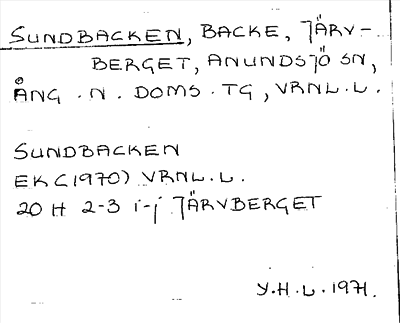 SUNDBACKEN, BACKE, JÄRV-
BERGET, ANUNDSJÖ SN,
ÅNG. N. DOMS. TG, VRNL. L.
SUNDBACKEN
EK (1970) VRNL. L.
20 H 2-3 i-j JÄRVBERGET
Y.H.L. 1971.